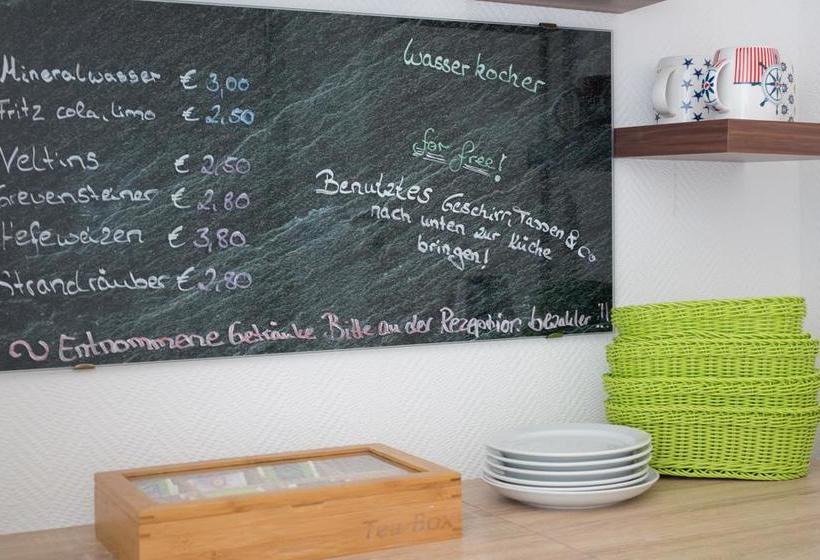 Mineralwasser € 3,00
Fritz cola, limo € 2,50
Veltins € 2,50
Grevensteiner € 2,80
Hefeweizen € 3,80
Strandräuber € 2,80
Wasserkocher
for free!
Benutztes Geschirr, Tassen & Co
nach unten zur Küche
bringen!
~ Entnommene Getränke Bitte an der Rezeption bezahlen !!
Tea Box